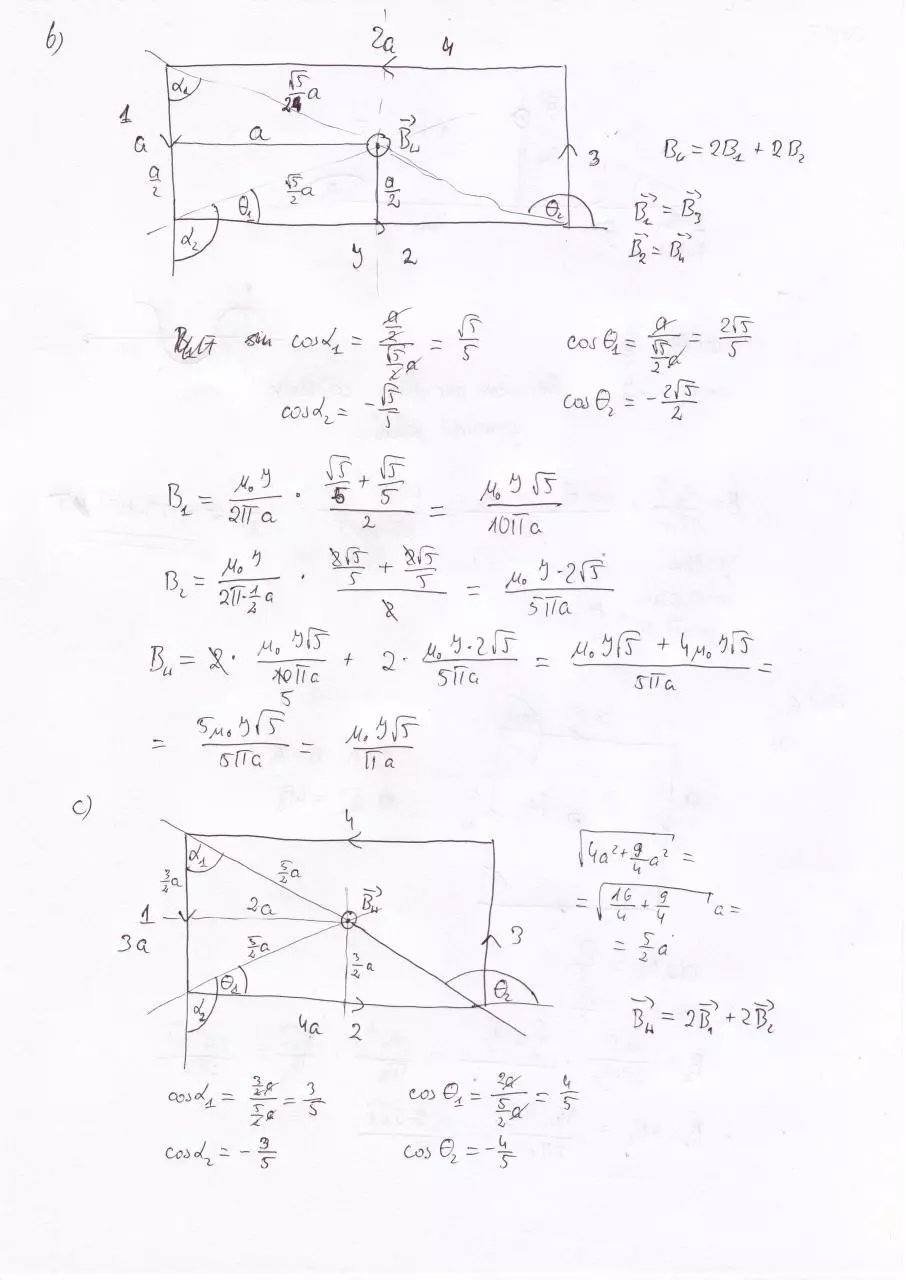 b)
2a 4
α₁ √5/2 a
1
a a B⃗ᵤ
3 Bᵤ = 2B₁ + 2B₂
a/2 √5/2 a a/2
θ₁ θ₂ B⃗₁ = B⃗₃
α₂ B⃗₂ = B⃗₄
I 2
cosα₁ = (a/2)/(√5/2 a) = √5/5 cosθ₁ = a/(√5/2 a) = 2√5/5
cosα₂ = -√5/5 cosθ₂ = -2√5/2
B₁ = μ₀I/2πa · (√5/5 + √5/5)/2 = μ₀I√5/10πa
B₂ = μ₀I/(2π·½a) · (2√5/5 + 2√5/5)/2 = μ₀I·2√5/5πa
Bᵤ = 2· μ₀I√5/10πa + 2· μ₀I·2√5/5πa = (μ₀I√5 + 4μ₀I√5)/5πa =
5
= 5μ₀I√5/5πa = μ₀I√5/πa
c)
4
α₁ 5/2 a √(4a² + 9/4 a²) =
3/2 a
1 2a B⃗ᵤ = √(16/4 + 9/4) a =
3a 5/2 a 3/2 a 3 = 5/2 a
θ₁ θ₂
α₂ B⃗ᵤ = 2B⃗₁ + 2B⃗₂
4a 2
cosα₁ = (3/2 a)/(5/2 a) = 3/5 cosθ₁ = 2a/(5/2 a) = 4/5
cosα₂ = -3/5 cosθ₂ = -4/5